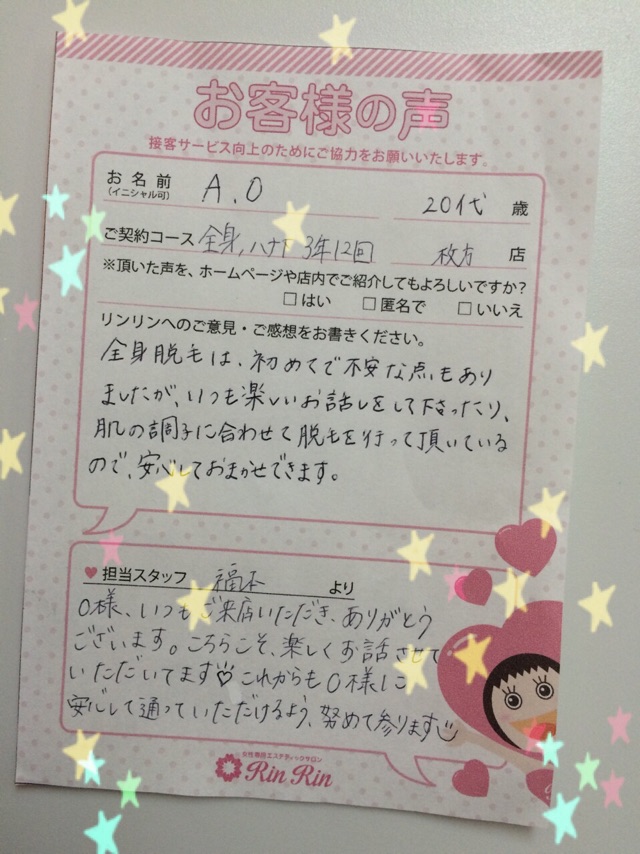 お客様の声
接客サービス向上のためにご協力をお願いいたします。
お名前 A.O 20代 歳
(イニシャル可)
ご契約コース 全身,ハナ下 3年12回 枚方 店
※頂いた声を、ホームページや店内でご紹介してもよろしいですか?
□はい □匿名で □いいえ
リンリンへのご意見・ご感想をお書きください。
全身脱毛は、初めてで不安な点もあり
ましたが、いつも楽しいお話しをして下さったり、
肌の調子に合わせて脱毛を行って頂いている
ので、安心しておまかせできます。
♥担当スタッフ 福本 より
O様、いつもご来店いただき、ありがとう
ございます。こちらこそ、楽しくお話させて
いただいてます♡これからもO様に
安心して通っていただけるよう、努めて参ります
女性専用エステティックサロン
Rin Rin